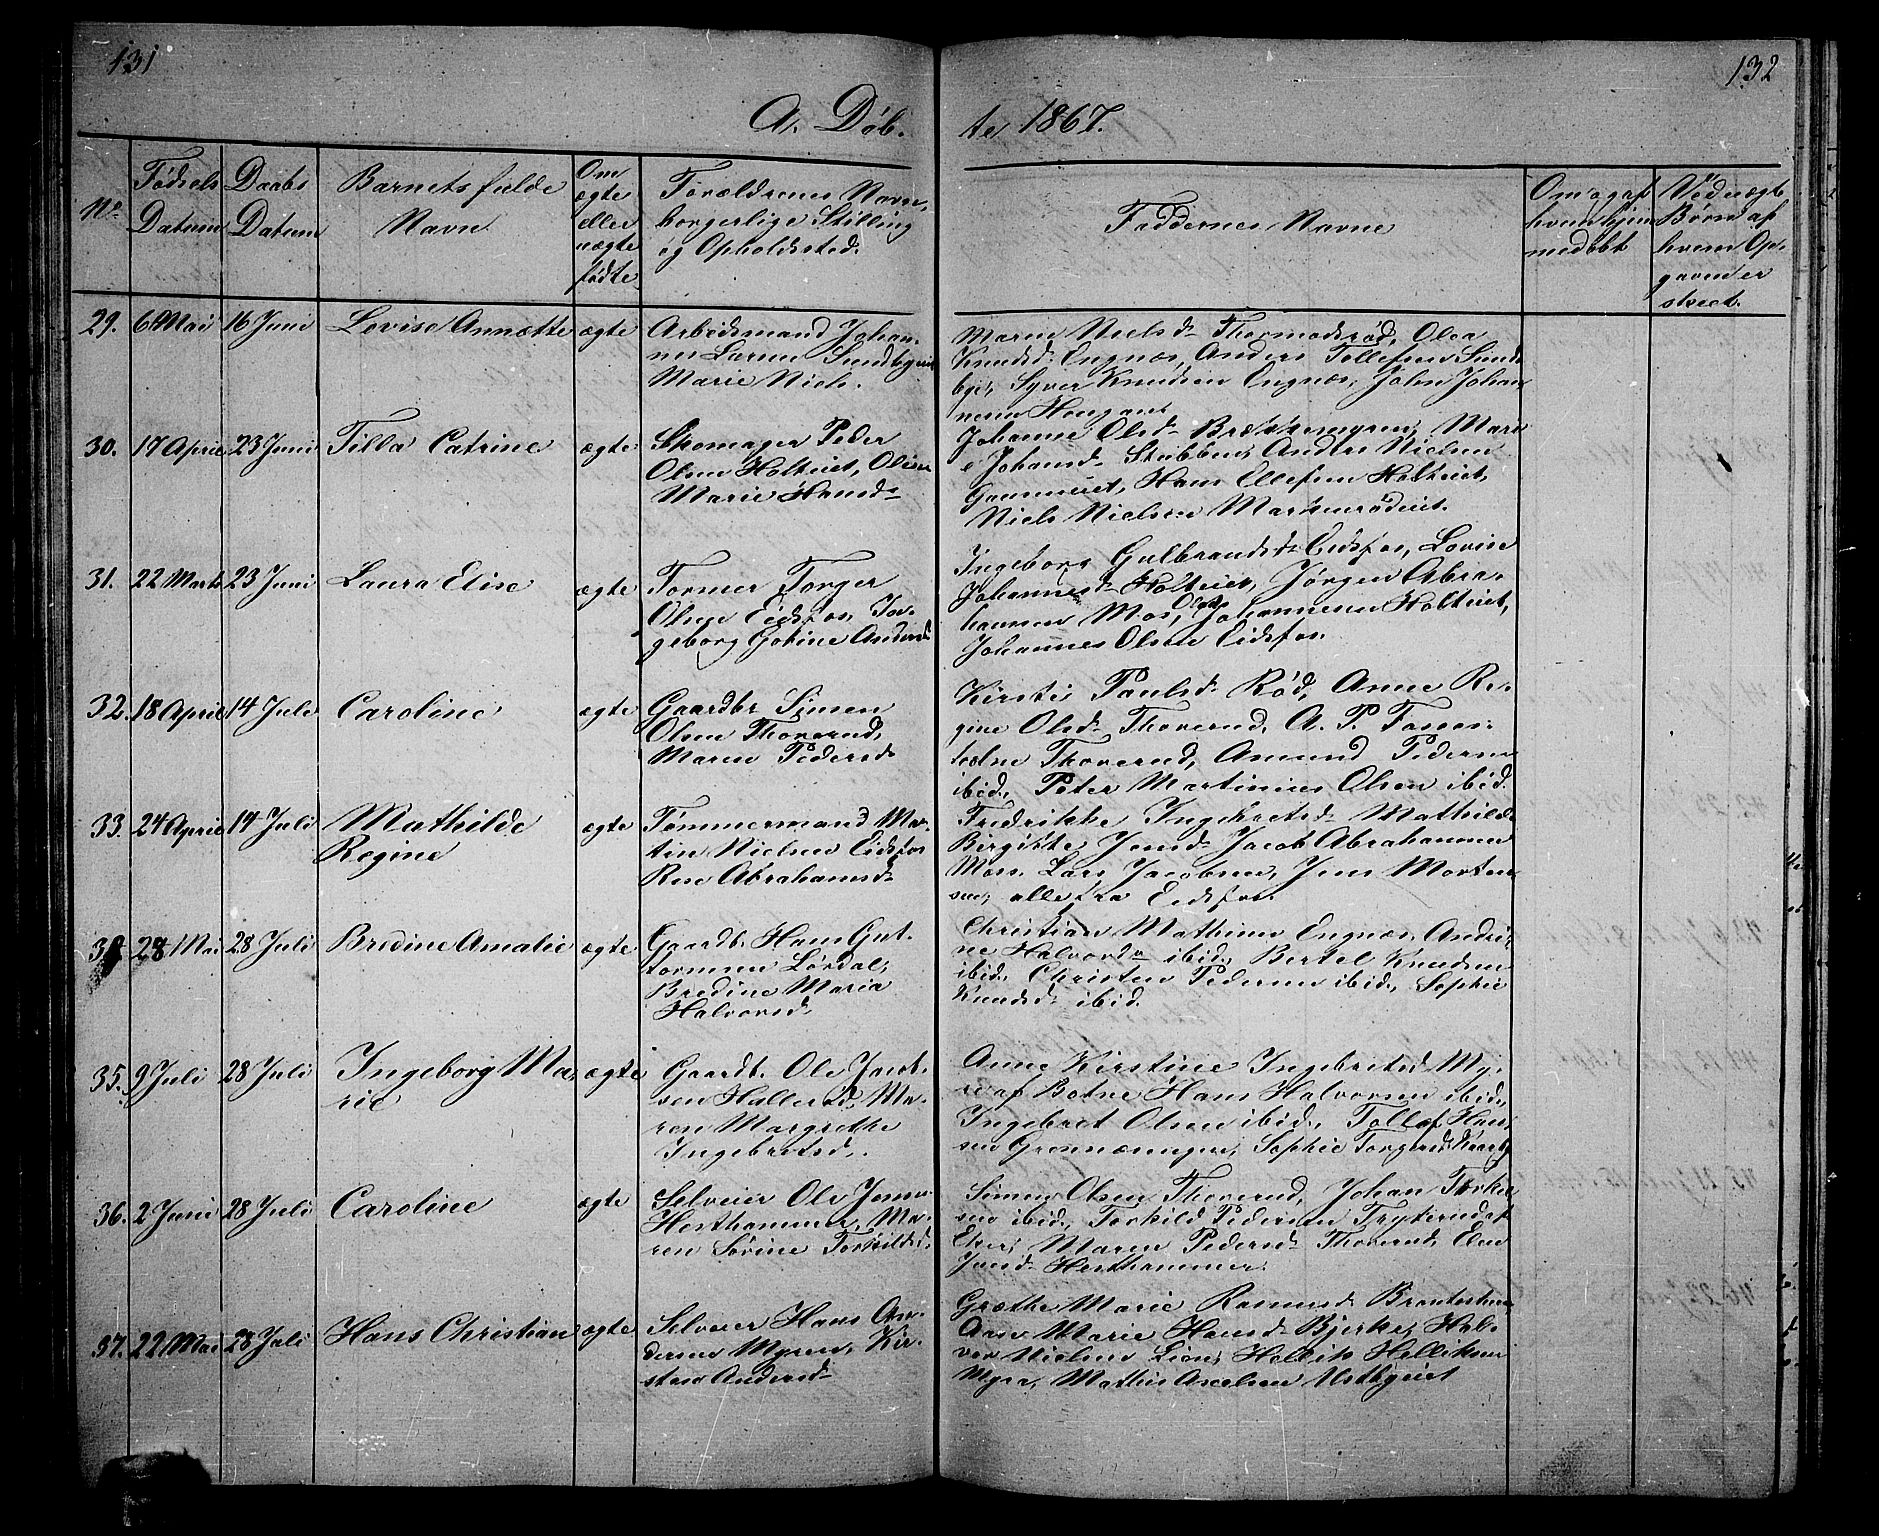 131
132
A. Døb-
te 1867.
No
Fødsels Datum
Daabs Datum
Barnets fulde Navn
Om ægte eller uægte fødte
Forældrenes Navn, borgerlige Stilling og Opholdssted.
Faddernes Navne
Om og af hvem hjemmedøbt
Ved uægte Børn af hvem Opgaven er skeet.
29. 6 Mai 16 Juni Lovise Annætte ægte
Arbeidsmand Johan-
nes Larsen
Marie Niels.
Maren Nielsd. Thormodsrød, Olea
Knudsd. Engnæs, Anders Tollefsen Sund-
bye, Syver Knudsen Engnæs, John Johan-
nesen Haugane
30. 17 April 23 Juni Tilla Catrine ægte
Skomager Peder
Olsen Holteiet, Oline
Marie Hansd.
Johanne Olsd. Brekkemyren, Mari-
e Johansd. Stubben, Anders Nielsen
Hans Ellefsen Holteiet,
Niels Nielsen
31. 22 Marts 23 Juni Laura Elise ægte
Former Torger
Olsen Eidsfos, In-
geborg Gokine Andersd.
Ingeborg Gulbrandsd. Eidsfos, Lovise
Johannesd. Holteiet, Jørgen Abra-
hamsen Moss, Olaves Johannesen Holteiet,
Johannes Olsen Eidsfos.
32. 18 April 14 Juli Caroline ægte
Gaardbr Simen
Olsen Thorerud,
Maren Pedersd.
Kirsti Paulsd. Rød, Anne Re-
gine Olsd. Thorerud, A. P.
Thorerud, Amund Pedersen
ibid., Peter Martinius Olsen ibid.
33. 24 April 14 Juli Mathilde
Regine ægte
Tømmermand Mar-
tin Nielsen Eidsfos
Rine Abrahamsd.
Fredrikke Ingebretsd. Mathilde
Birgitte Jensd. Jacob Abrahamsen
Moss. Lars Jacobsen, Jens Morten-
sen, alle fra Eidsfos.
34. 24 Mai 28 Juli Bredine Amalie ægte
Gaardb. Hans Gut-
tormsen Lørdal,
Bredine Maria
Halvorsd.
Christian Mathisen Engnæs, Andri-
ne Halvorsd. ibid., Bertel Knudsen
ibid., Christen Pedersen ibid., Sophie
Knudsd. ibid.
35. 9 Juli 28 Juli Ingeborg Ma-
rie ægte
Gaardb. Ole Jacob-
sen Hallerød, Ma-
ren Margrethe
Ingebretsd.
Anne Kirstine Ingebretsd. My-
re af Botne Hans Halvorsen ibid.,
Ingebret Olsen ibid., Tollef Han-
sen Grønnæningen, Sophie Torgersd.
36. 2 Juni 28 Juli Caroline ægte
Selveier Ole Jensen
Hesthammer, Ma-
ren Sørine Torkildsd.
Simen Olsen Thorerud, Johan Torkil-
sen ibid., Torkild Pedersen Trykerud af
Eker, Maren Pedersd. Thorerud, Elen
Jensd. Hesthammer.
37. 22 Mai 28 Juli Hans Christian ægte
Selveier Hans An-
dersen Myren, Kir-
stine Andersd.
Grethe Marie Rasmusd.
Aase Marie Hansd. Bjerke, Hal-
vor Nielsen Lien, Hellik Helliksen
Myra, Mathis Axelsen